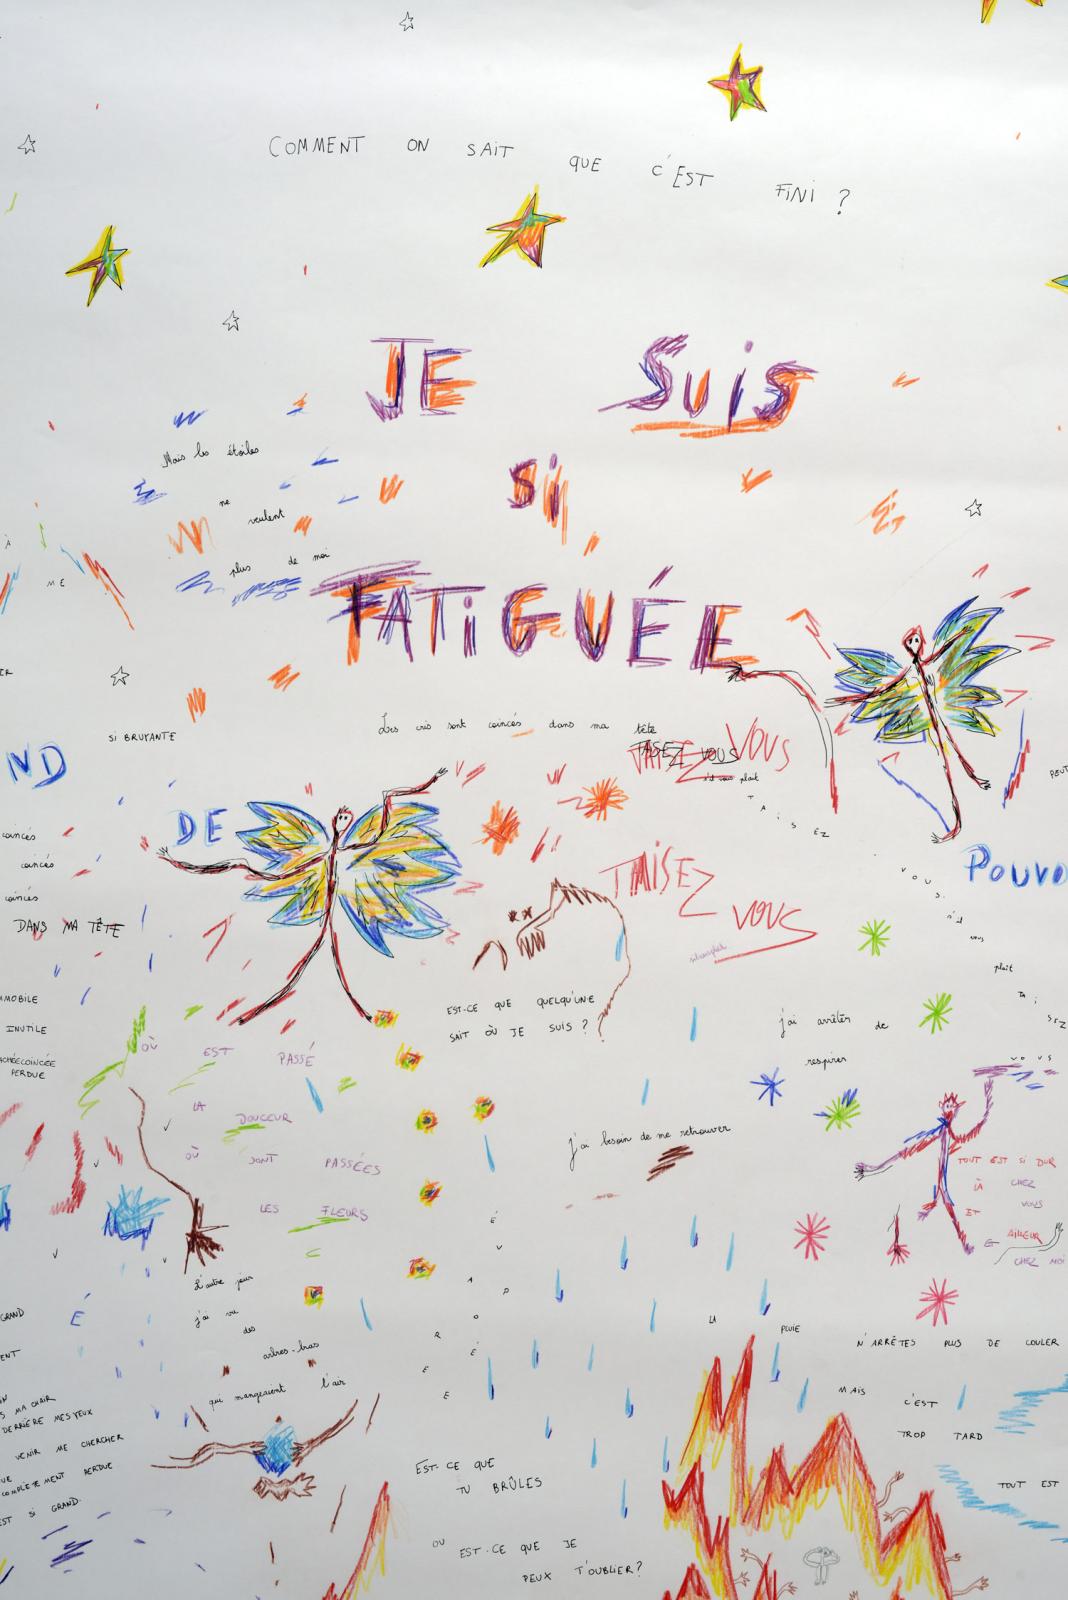 COMMENT ON SAIT QUE C'EST FINI ?
JE SUIS
SI
FATIGUÉE
Mais les étoiles
ne
veulent
plus de moi
À
ME
SI BRUYANTE
ND
DE
Les cris sont coincés dans ma tête
TAISEZ VOUS
TAISEZ VOUS
s'il vous plaît
TAISEZ
VOUS
s'il
vous
plaît
TAISEZ
VOUS
TAISEZ
VOUS
PEUT
POUVO
coincés
coincés
coincés
DANS MA TÊTE
IMMOBILE
INUTILE
PERDUE
EST-CE QUE QUELQU'UNE
SAIT OÙ JE SUIS ?
j'ai arrêter de
respirer
OÙ EST PASSÉ
LA DOUCEUR
OÙ SONT PASSÉES
LES FLEURS
j'ai besoin de me retrouver
TOUT EST SI DUR
LÀ CHEZ
VOUS
ET AILLEUR
CHEZ MOI
L'autre jour
j'ai vu
des
arbres-bras
qui mangeaient l'air
É
V
A
P
O
R
É
E
E
LA PLUIE N'ARRÊTES PLUS DE COULER
MAIS C'EST
TROP TARD
TOUT EST
GRAND
É
MA CHAIR
DERRIÈRE MES YEUX
VENIR ME CHERCHER
COMPLÈTEMENT PERDUE
EST SI GRAND.
EST-CE QUE
TU BRÛLES
OU EST-CE QUE JE
PEUX T'OUBLIER ?